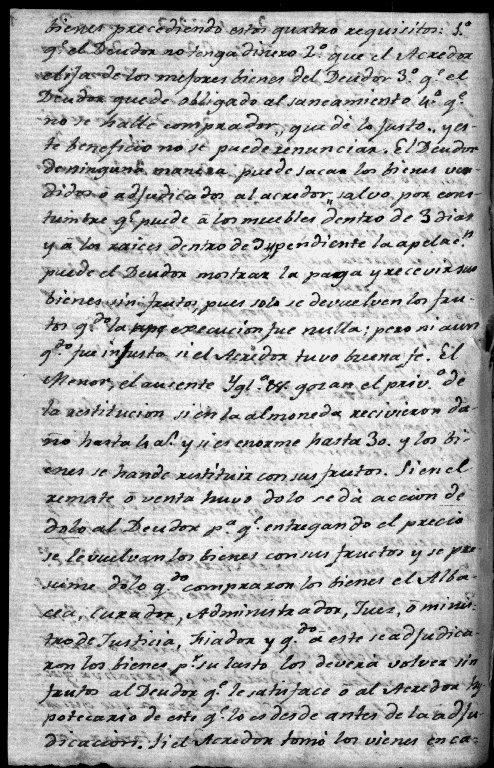 bienes precediendo estos quatro requisitos: 1.º
q.e el Deudor no tenga dinero 2.º que el Acredor
elija de los mejores bienes del Deudor 3.º q.e el
Deudor quede obligado al saneamiento 4.º q.e
no se halle comprador, que dé lo justo.. y es-
te beneficio no se puede renunciar. El Deudor
de ninguna manera puede sacar los bienes ven-
didos ó adjudicados al acredor, salvo por cos-
tumbre q.e puede á los muebles dentro de 3 dias
y á los raices dentro de 9 y pendiente la apelac.n
puede el Deudor mostrar la paga y recevir sus
bienes sin frutos, pues solo se devuelven los fru-
tos q.do la execucion fue nulla; pero ni aun
q.do fue injusta si el Acredor tuvo buena fé. El
Menor, el ausente Ygl.a &c gozan el priv.o de
la restitucion si en la almoneda recivieron da-
ño hasta 4 a.s y si es enorme hasta 30. y los bi-
enes se han de restituir con sus frutos. Si en el
remate ó venta huvo dolo se dá accion de
dolo al Deudor p.a q.e entregando el precio
se le vuelvan los bienes con sus fructos y se pre-
sume dolo q.do compraron los bienes el Alba-
cea, Curador, Administrador, Juez, ó minis-
tro de Justicia, Fiador y q.do á este se adjudica-
ron los bienes p.r su lasto los deverá volver sin
frutos al Deudor q.e le satisface ó al Acredor hy-
potecario de este q.e lo es desde antes de la adju-
dicacion. Si el Acredor tomó los vienes en ca-